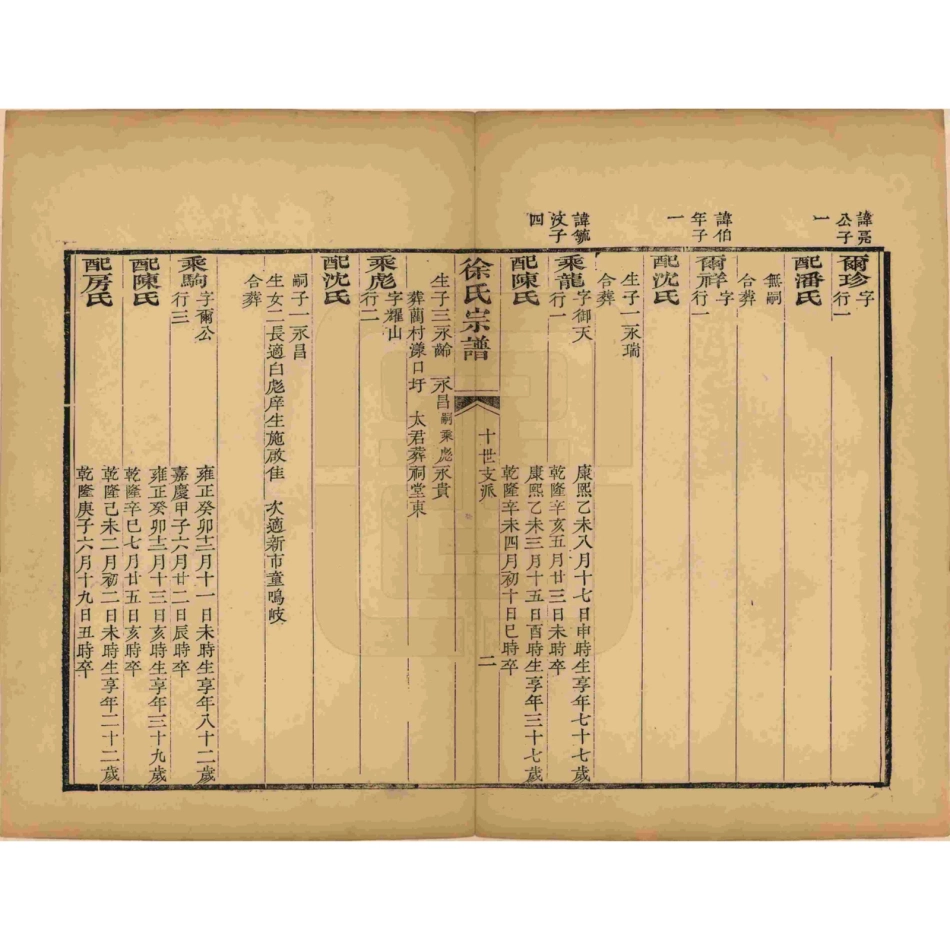 諱亮
公子
一
爾珍 字
行一
配潘氏
無嗣
合葬
諱伯
年子
一
爾祥 字
行一
配沈氏
生子一永瑞
合葬
諱毓
汶子
四
乘龍 字御天
行一
康熙乙未八月十七日申時生享年七十七歲
乾隆辛亥五月廿三日未時卒
配陳氏
康熙乙未三月十五日酉時生享年三十七歲
乾隆辛未四月初十日巳時卒
徐氏宗譜
十世支派
二
生子三永齡 永昌嗣乘彪永貴
葬藺村濠口圩 太君葬祠堂東
乘彪 字耀山
行二
配沈氏
嗣子一永昌
生女二長適白彪庠生施啟佳 次適新市童鳴岐
合葬
乘駒 字爾公
行三
雍正癸卯十二月十一日未時生享年八十二歲
嘉慶甲子六月廿二日辰時卒
配陳氏
雍正癸卯十二月十三日亥時生享年三十九歲
乾隆辛巳七月廿五日亥時卒
配房氏
乾隆己未二月初二日未時生享年二十二歲
乾隆庚子六月十九日丑時卒